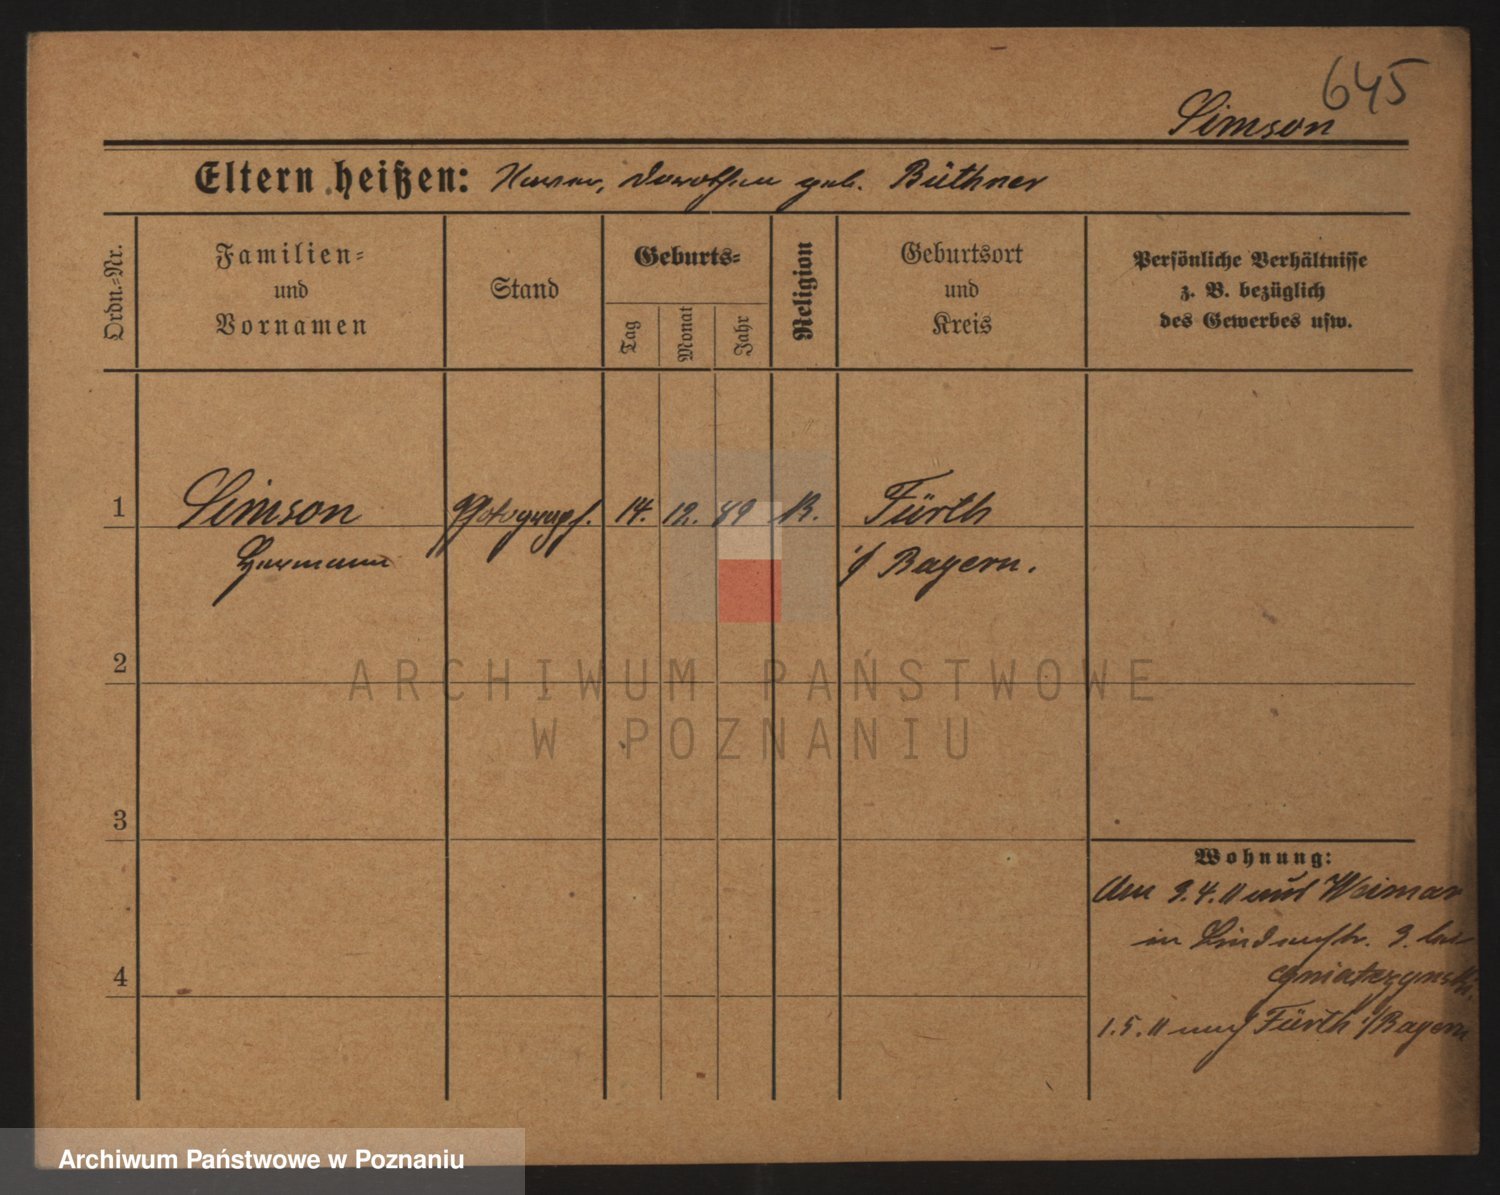 645
Simson
Eltern heißen: Xaver, Dorothea geb. Büthner
Ordn.-Nr.
Familien-
und
Vornamen
Stand
Geburts-
Tag
Monat
Jahr
Religion
Geburtsort
und
Kreis
Persönliche Verhältnisse
z. B. bezüglich
des Gewerbes usw.
1 Simson Photograph. 14. 12. 89 K. Fürth
Hermann i/ Bayern.
2
3
4
Wohnung:
Am 3.4.11 aus Weimar
in Lindenstr. 3. bei
1.5.11 nach Fürth i/Bayern
ARCHIWUM PAŃSTWOWE
W POZNANIU
Archiwum Państwowe w Poznaniu